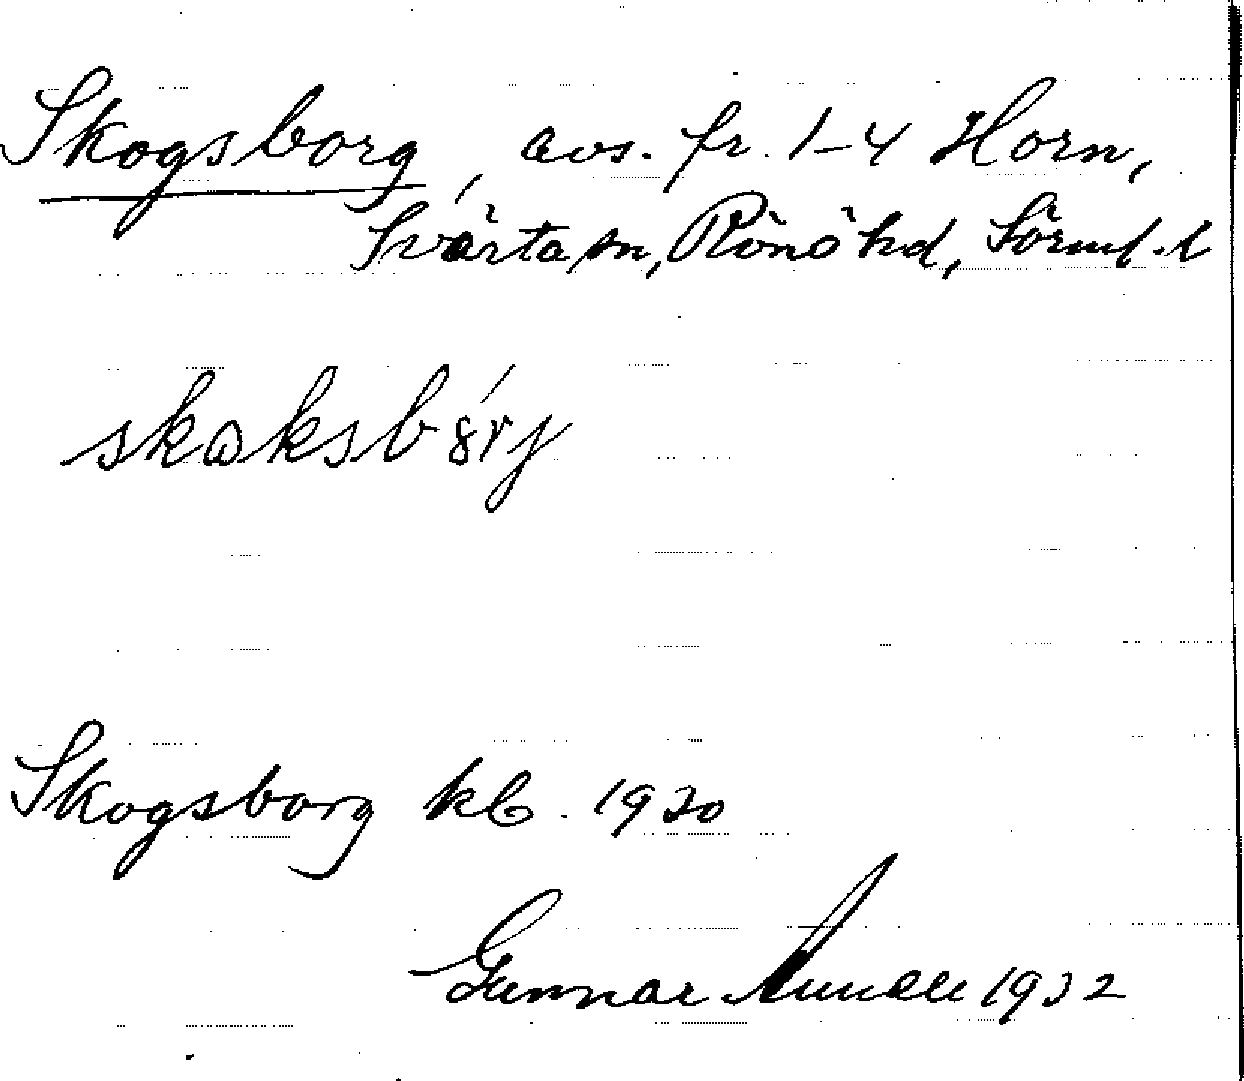 Skogsborg, avs. fr. 1-4 Horn,
Svärta sn, Rönö hd, Sörml. l
skɷksbórj
Skogsborg kb. 1930
Gunnar 1932